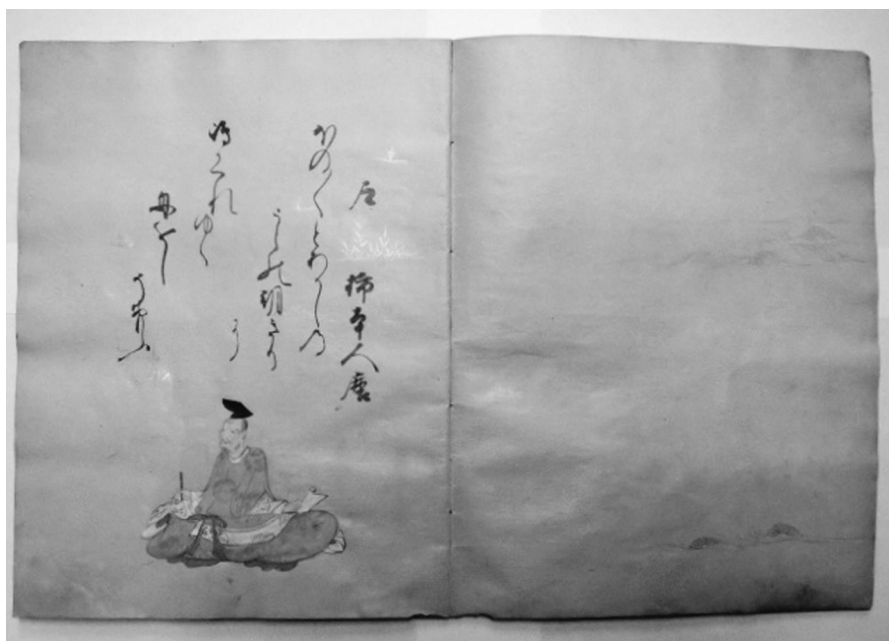 左 柿本人麿
ほの〱とあかしの
うらの朝きり
に
嶋かくれゆく
舟をし
そおもふ